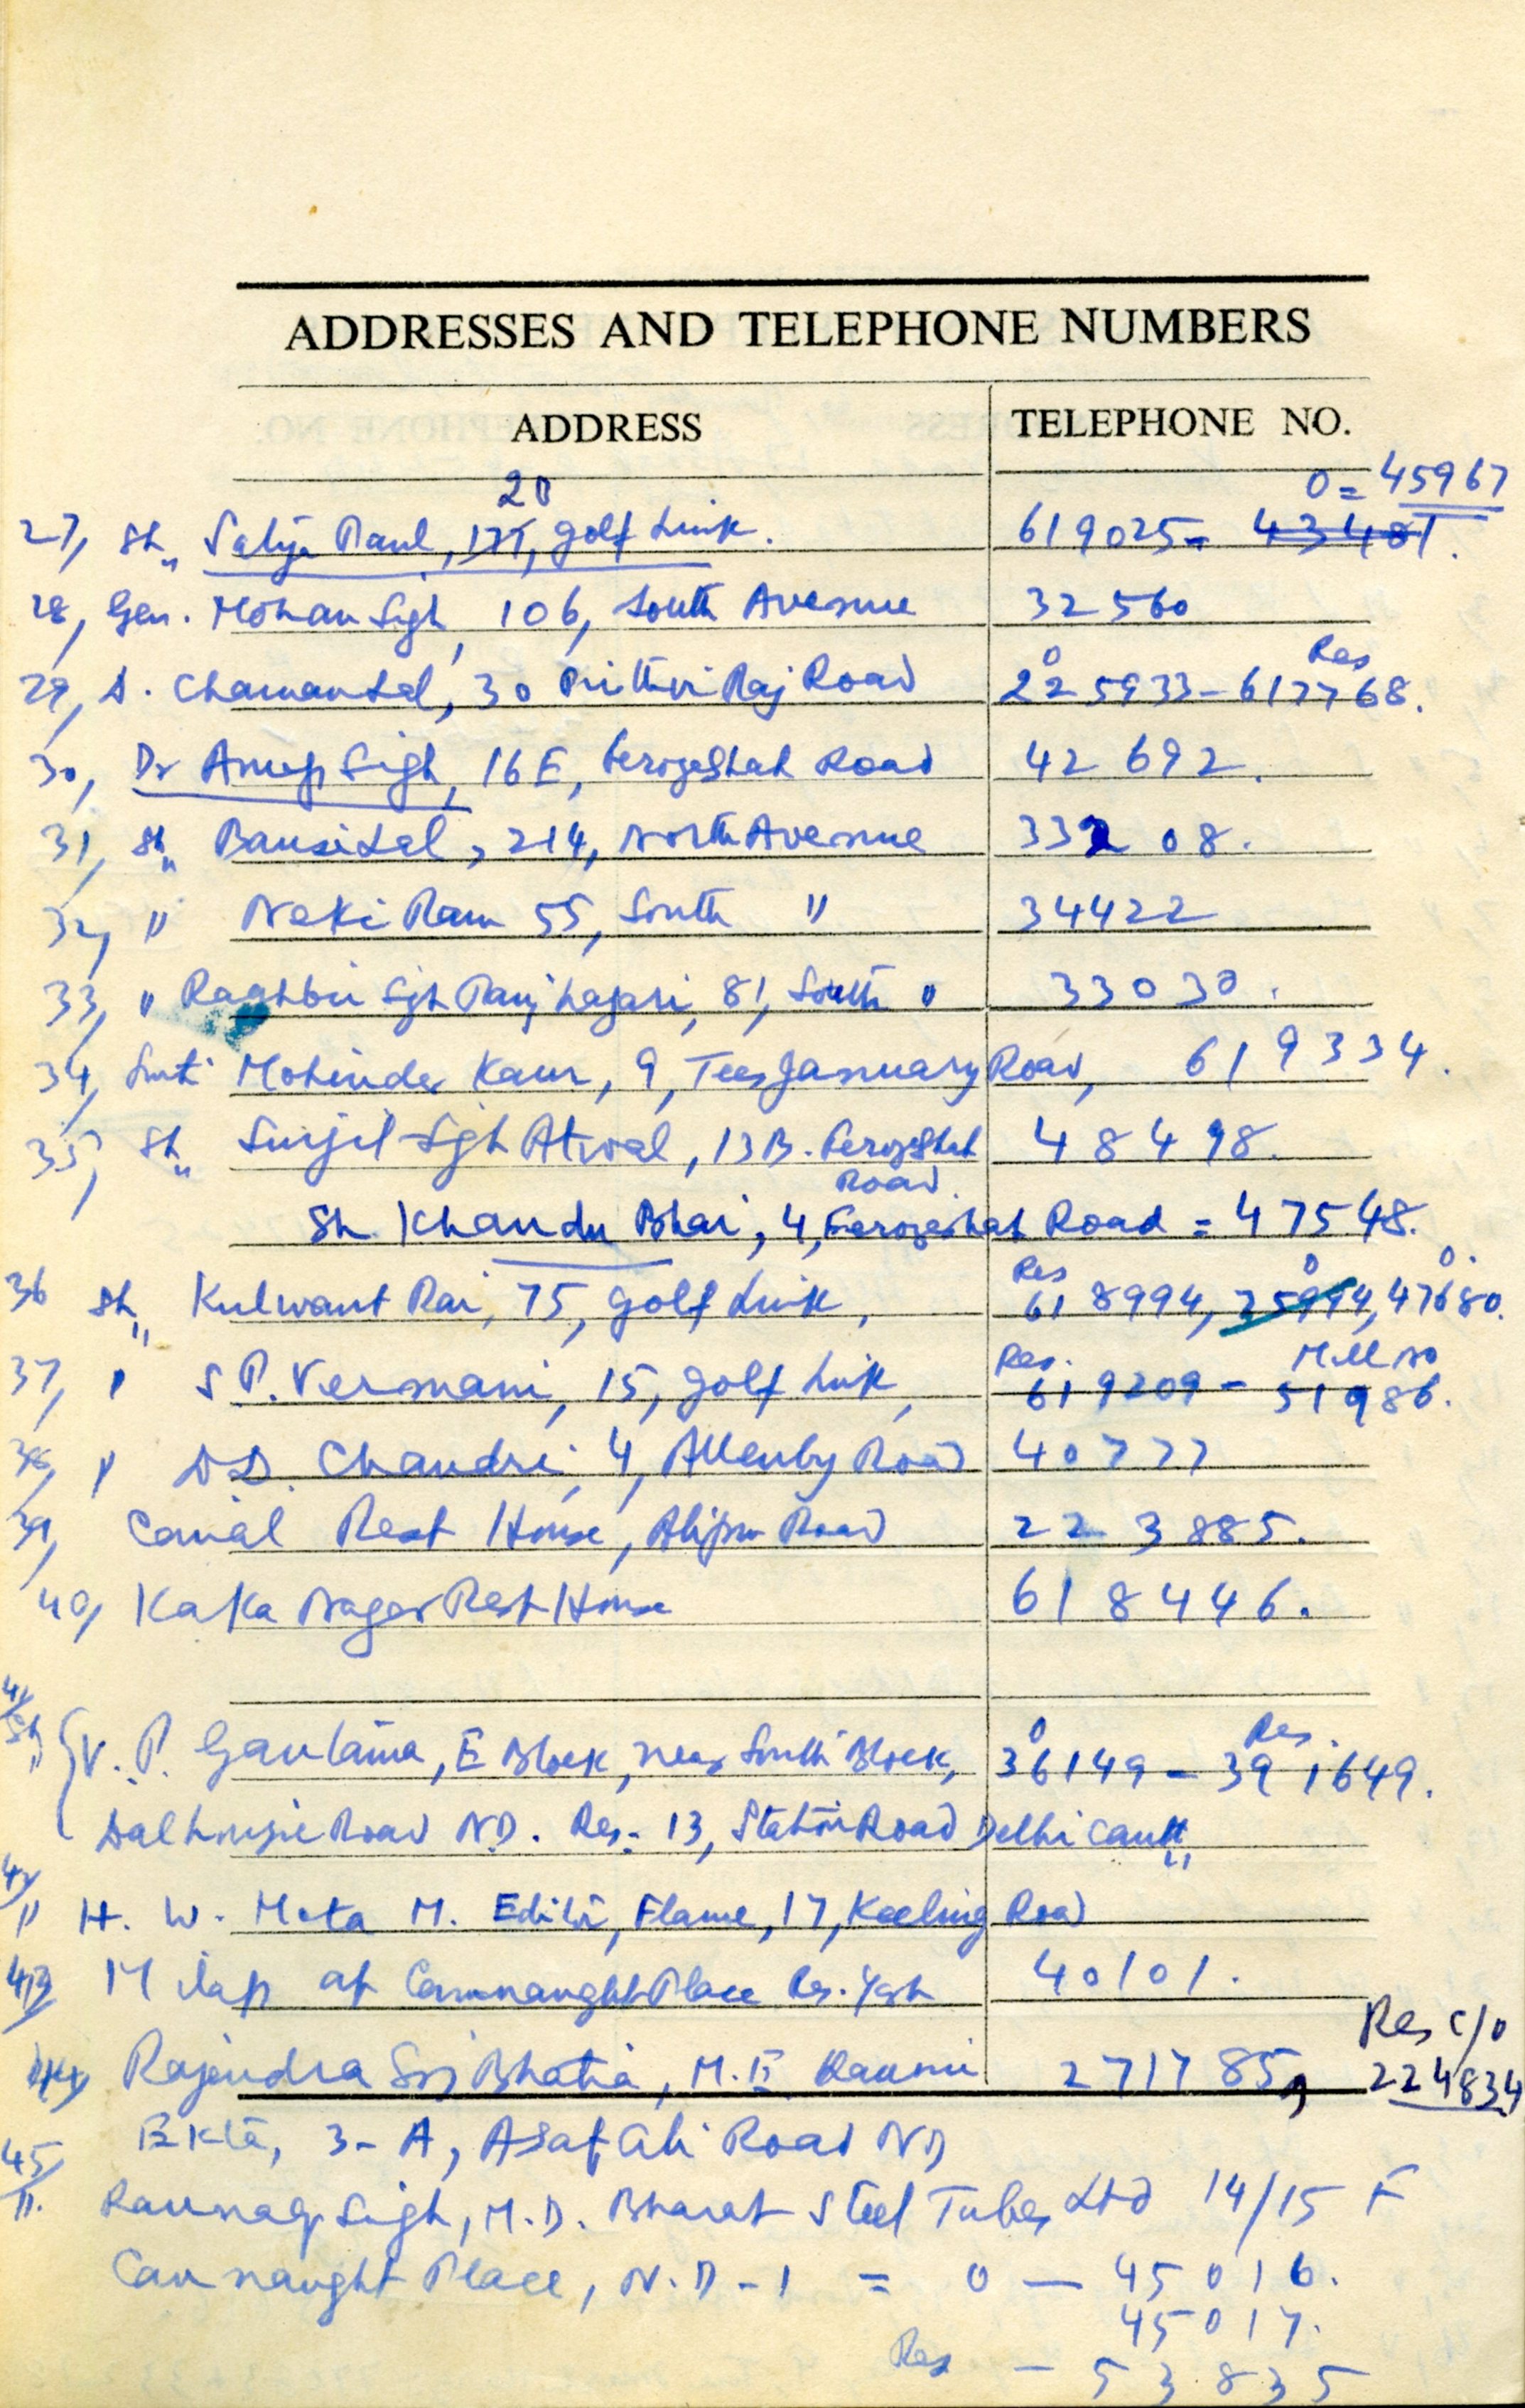 ADDRESSES AND TELEPHONE NUMBERS
ADDRESS TELEPHONE NO.
20 0= 45967
27, Sh,, Satya Paul, 171, Golf Link. 619025= 43481.
28, Gen. Mohan Sigh, 106, South Avenue 32560
0 Res
29, D. Chamanlal, 30 Prithvi Raj Road 225933-617768.
30, Dr Anup Sigh, 16E, Ferozeshah Road 42692.
31, Sh,, Bansi Lal, 214, North Avenue 332 08.
32, " Neki Ram 55, South " 34422
33, " Raghbir Sgh Panjhazari, 81, South " 33030.
34, Smti Mohinder Kaur, 9, Tees January Road, 619334.
35, Sh,, Surjit Sgh Atwal, 13B. Ferozshah 48498.
Road.
Sh. Khandu Bhai, 4, Ferozeshah Road = 47548.
Res 0 0.
36 Sh,, Kulwant Rai, 75, Golf Link, 618994, 25994, 47680.
Res. Mill no
37, " S P. Vermani, 15, Golf Link, 619209 - 51986.
38, " D.D. Chandri, 4, Allenby Road 40777
39, Canal Rest House, Alipur Road 223885.
40, Kaka Nagar Rest House 618446.
41/ 0 Res.
Sh,, V. P. Gautama, E Block, near South Block, 36149 - 391649.
Dalhousie Road ND. Res. 13, Station Road Delhi Cantt,,
42/
" H. W. M. Editor, Flame, 17, Keeling Road
43/ Milap at Connaught Place Res. Yash 40101.
Res c/o
44/ Rajendra Bhatia, M. E. Kaumi 271785, 224834
Ekta, 3-A, Asaf Ali Road ND
45/
". Raunaq Singh, M.D. Bharat Steel Tubes Ltd 14/15 F
Cannaught Place, N.D-1 = 0 — 45016.
45017.
Res - 53835